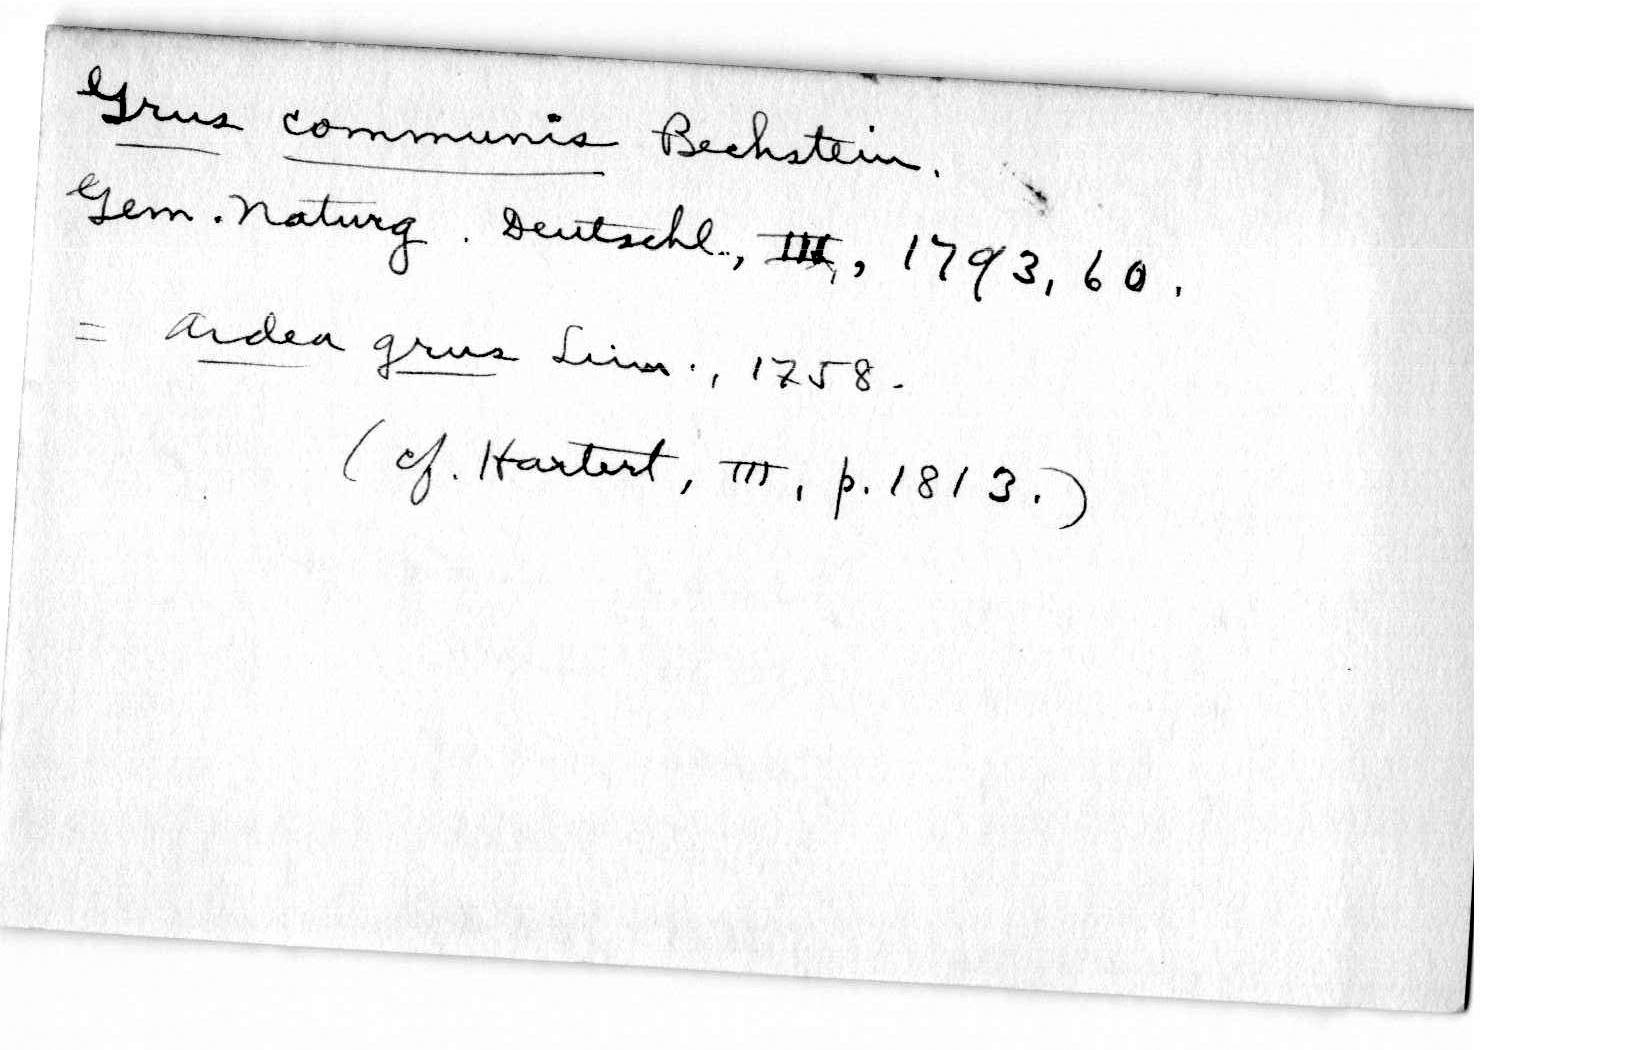 Grus communis Bechstein.
Gem. Naturg. Deutschl., III, 1793, 60.
= Ardea grus Linn., 1758.
(cf. Hartert, III, p. 1813.)